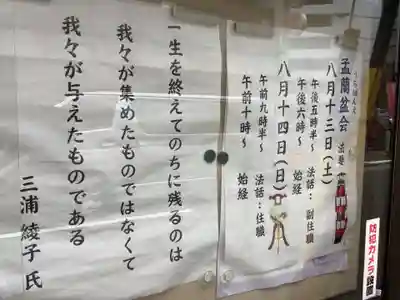 うらぼんえ
盂蘭盆会 法要
八月十三日(土)
午後五時半～ 法話:副住職
午後六時～ 始経
八月十四日(日)
午前九時半～ 法話:住職
午前十時～ 始経
一生を終えてのちに残るのは
我々が集めたものではなくて
我々が与えたものである
三浦綾子 氏
防犯カメラ設置